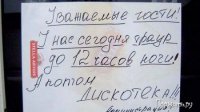 Уважаемые гости!
У нас сегодня траур
до 12 часов ночи!
А потом
Дискотека!
Администрация